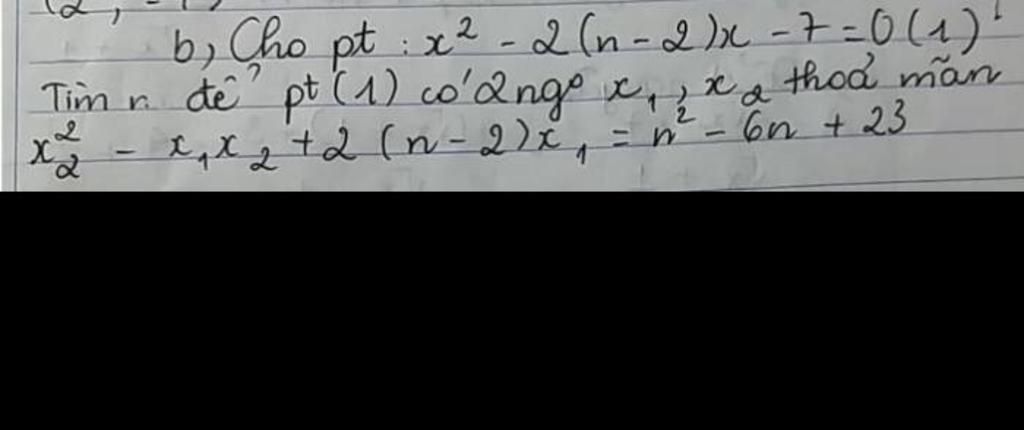 b, Cho pt : x² - 2(n-2)x - 7 = 0 (1)
Tìm n để pt (1) có 2 ngº x₁, x₂ thoả mãn
x₂² - x₁x₂ + 2(n-2)x₁ = n² - 6n + 23